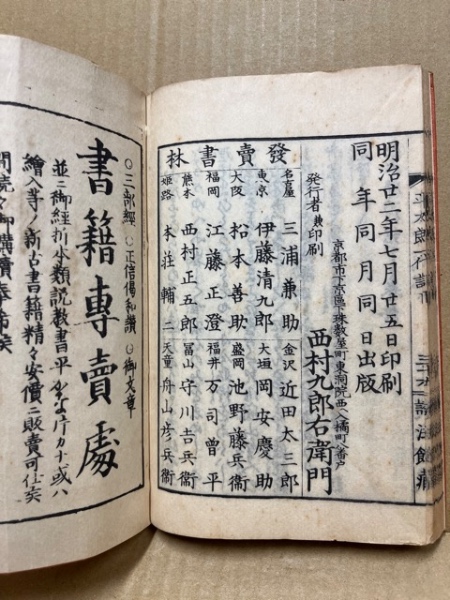 明治廿二年七月廿五日印刷
同年同月同日出版
京都市下京區珠数屋町東洞院西入橘町八番戸
發行者兼印刷
西村九郎右衛門
發賣書林
名古屋 三浦兼助
東京 伊藤清九郎
大阪 松本善助
福岡 江藤正澄
熊本 西村正五郎
姫路 本荘輔二
金沢 近田太三郎
大垣 岡安慶助
盛岡 池野藤兵衞
福井 万司曽平
冨山 守川吉兵衞
天童 舟山彦兵衞
○三部經 ○正信偈和讃 ○御文章
書籍専賣處
並ニ御經折本類説教書平かな片カナ十或ハ
繪入等ノ新古書籍精々安價ニ販賣可仕矣
間続々御購讀奉希矣